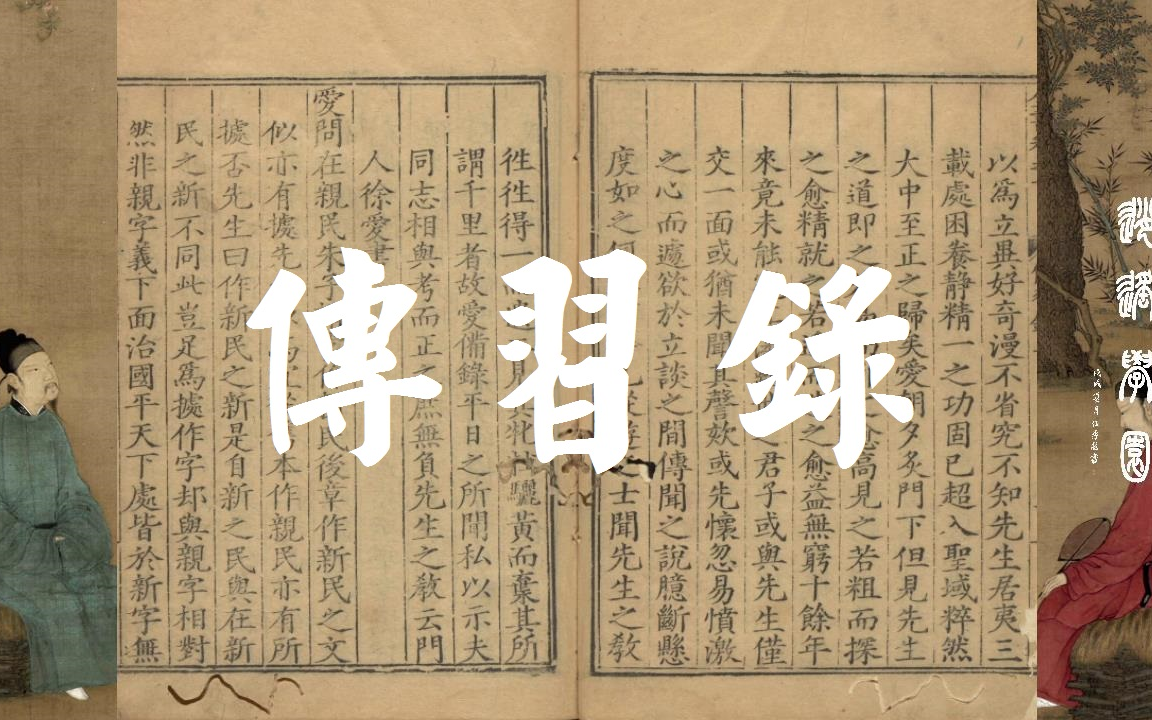 傳習錄
逍遙學園
以爲立異好奇漫不省究不知先生居夷三
載處困養靜精一之功固已超入聖域粹然
大中至正之歸矣愛朝夕炙門下但見先生
之道即之 愈高見之若粗而探
之愈精就之若 之愈益無窮十餘年
來竟未能 之君子或與先生僅
交一面或猶未聞其謦欬或先懷忽易憤激
之心而遽欲於立談之間傳聞之說臆斷懸
度如之何 從遊之士聞先生之教
徃徃得一 見其牝牡驪黃而棄其所
謂千里者故愛備錄平日之所聞私以示夫
同志相與考而正之庶無負先生之教云門
人徐愛書
愛問在親民朱子 民後章作新民之文
似亦有據先 本作親民亦有所
據否先生曰作新民之新是自新之民與在新
民之新不同此豈足爲據作字却與親字相對
然非親字義下面治國平天下處皆於新字無